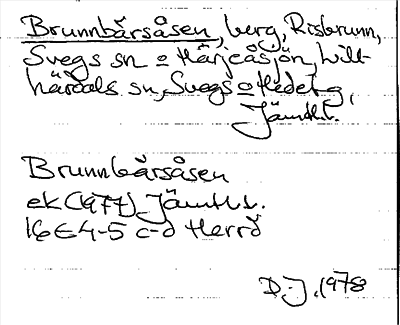 Brunnbårsåsen, berg, Risbrunn,
Svegs sn o Härjeåsjön, Lill-
härdals sn, Svegs o Hede tg,
Jämtl.
Brunnbårsåsen
ek (1977) Jämtl. l.
16E 4-5 c-d Herrö
D.J. 1978